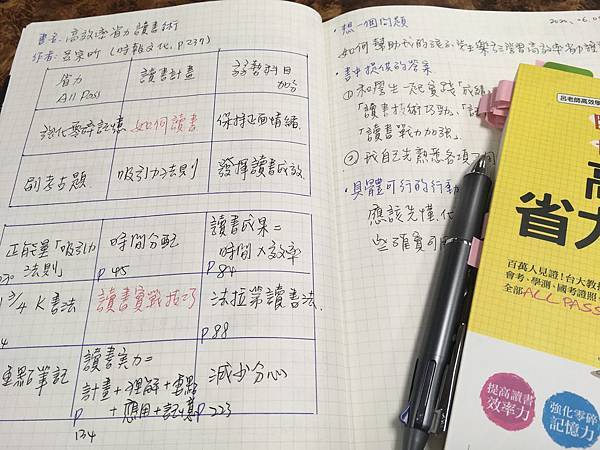 書名:高效率省力讀書術
作者:呂宗昕(時報文化, P.237)
省力
All Pass
讀書計畫
弱勢科目
加分
強化零碎記憶
如何讀書
保持正面情緒
刷考古題
吸引力法則
發揮讀書成效
正能量「吸引力
法則
時間分配
P 45
讀書成果=
時間 x 效率
P 84
3/4 K書法
讀書實戰技巧
法拉第讀書法
P 88
重點筆記
讀書实力=
計畫+理解+重點
+應用+記憶
P
134
減少分心
P 223
•想一個問題
2020.06.0
如何幫助我的孩子/學生樂於學習高效率省力讀
•書中提供的答案
①和學生一起實踐「成
「讀書技術巧勁」、「讀
「讀書戰力加強」
②我自己先熟悉各項
•具體可行的行動
應該先懂、
些確實可
呂老師高效
高
省力
百萬人見證!台大教
會考、學測、國考證照、
全部ALL PASS
提高讀書
效率力
強化零碎
記憶力